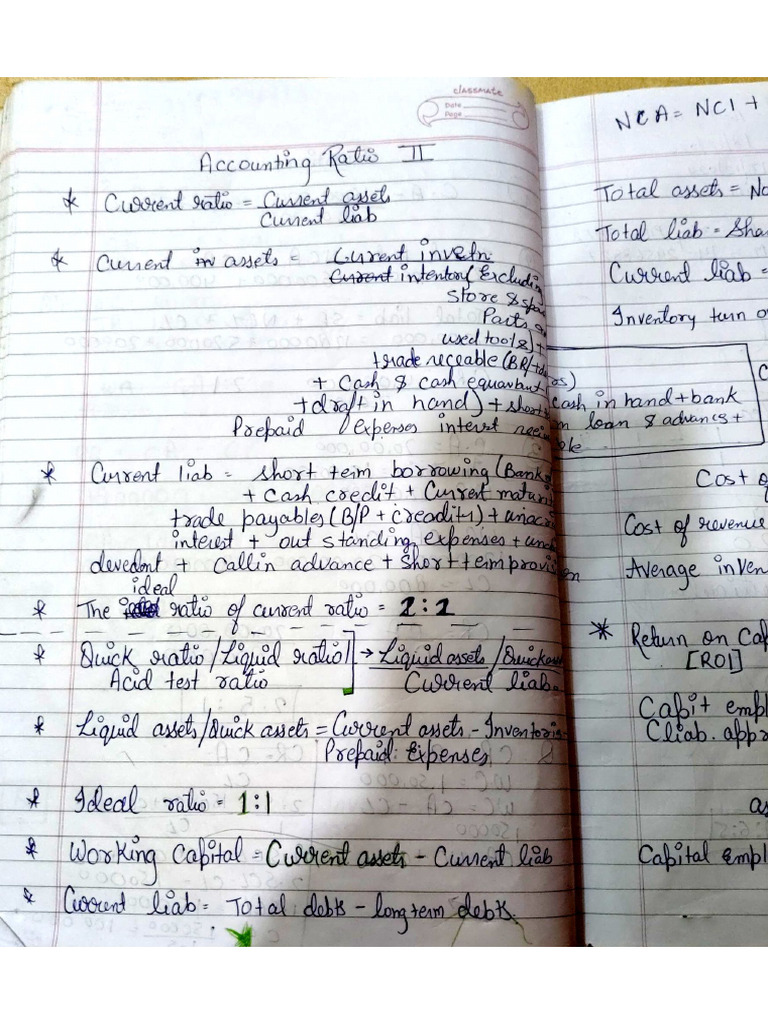 classmate
Date
Page
Accounting Ratio II
* Current ratio = Current assets
Current liab
* Current assets = Current invetn.
Current intentory Excludin
Store & spa
Parts,
used tools) +
trade receable (BR/+
+ Cash & cash equavbant
+ draft in hand) + short
Prepaid Expenses interst
* Current liab = Short teim borrowing (Bank
+ Cash credit + Current maturi
trade payables (B/P + creaditi) +
interest + out standing expenses +
devedent + Callin advance + Short term provi
ideal
* The ratio of current ratio = 2:1
* Quick ratio/Liquid ratio/ → Liquid assets/Quick
Acid test ratio Current liab.
* Liquid assets/Quick assets = Current assets - Inventoris
Prepaid: Expenses
* Ideal ratio = 1:1
* Working Capital = Current assets - Current liab
* Current liab = Total debts - long term debts.
NCA = NCI +
Total assets = Nc
Total liab = Sha
Current liab =
Inventory turn o
cash in hand + bank
loan & advance +
Cost o
Cost of revenue
Average inven
* Return on Cap
[ROI]
Capit empl
Cliab. appr
as
Capital Empl